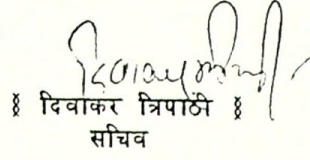 § दिवाकर त्रिपाठी §
सचिव